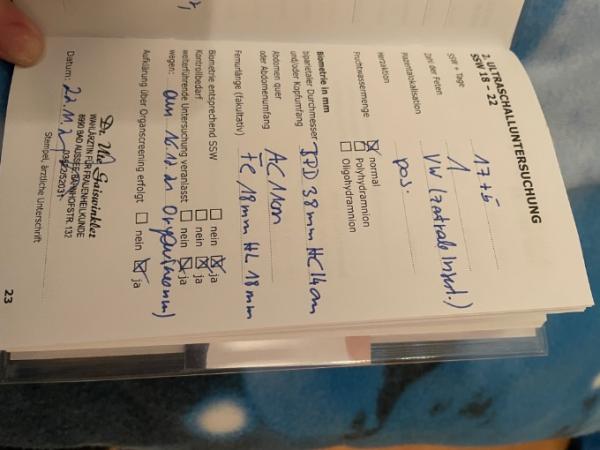 2. ULTRASCHALLUNTERSUCHUNG
SSW 18 – 22
SSW + Tage 17+5
Zahl der Feten 1
Plazentalokalisation VW (zentrale Insert.)
Herzaktion pos.
Fruchtwassermenge ☒ normal
☐ Polyhydramnion
☐ Oligohydramnion
Biometrie in mm
biparietaler Durchmesser
und/oder Kopfumfang BPD 38mm HC 14cm
Abdomen quer
oder Abdomenumfang AC 11cm
Femurlänge (fakultativ) FL 18mm HL 18mm
Biometrie entsprechend SSW ☐ nein ☒ ja
Kontrollbedarf ☐ nein ☒ ja
weiterführende Untersuchung veranlasst ☐ nein ☒ ja
wegen: am 16.12.21
Aufklärung über Organscreening erfolgt ☐ nein ☒ ja
Dr. Ute Gaiswinkler
WAHLÄRZTIN FÜR FRAUENHEILKUNDE
8990 BAD AUSSEE, BAHNHOFSTR. 132
Datum: 22.11.21
Stempel, ärztliche Unterschrift
23